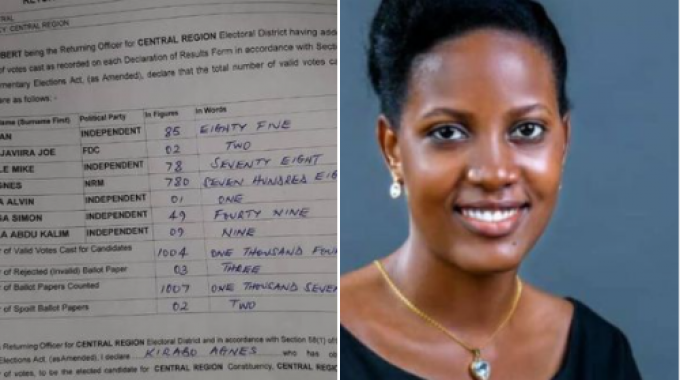 CENTRAL REGION
BERT being the Returning Officer for CENTRAL REGION Electoral District having
of votes cast as recorded on each Declaration of Results Form in accordance with
mentary Elections Act, (as Amended), declare that the total number of valid votes
are as follows: -
Name (Surname First) Political Party In Figures In Words
AN INDEPENDENT 85 EIGHTY FIVE
JAVIIRA JOE FDC 02 TWO
LE MIKE INDEPENDENT 78 SEVENTY EIGHT
GNES NRM 780 SEVEN HUNDRED EIG
A ALVIN INDEPENDENT 01 ONE
SA SIMON INDEPENDENT 49 FOURTY NINE
A ABDU KALIM INDEPENDENT 09 NINE
r of Valid Votes Cast for Candidates 1004 ONE THOUSAND FOU
r of Rejected (Invalid) Ballot Paper 03 THREE
r of Ballot Papers Counted 1007 ONE THOUSAND SEVEN
r of Spoilt Ballot Papers 02 TWO
Returning Officer for CENTRAL REGION Electoral District and in accordance with Section 58(1) of
Elections Act, (as Amended), I declare KIRABO AGNES who has
of votes, to be the elected candidate for CENTRAL REGION Constituency, CENTRAL